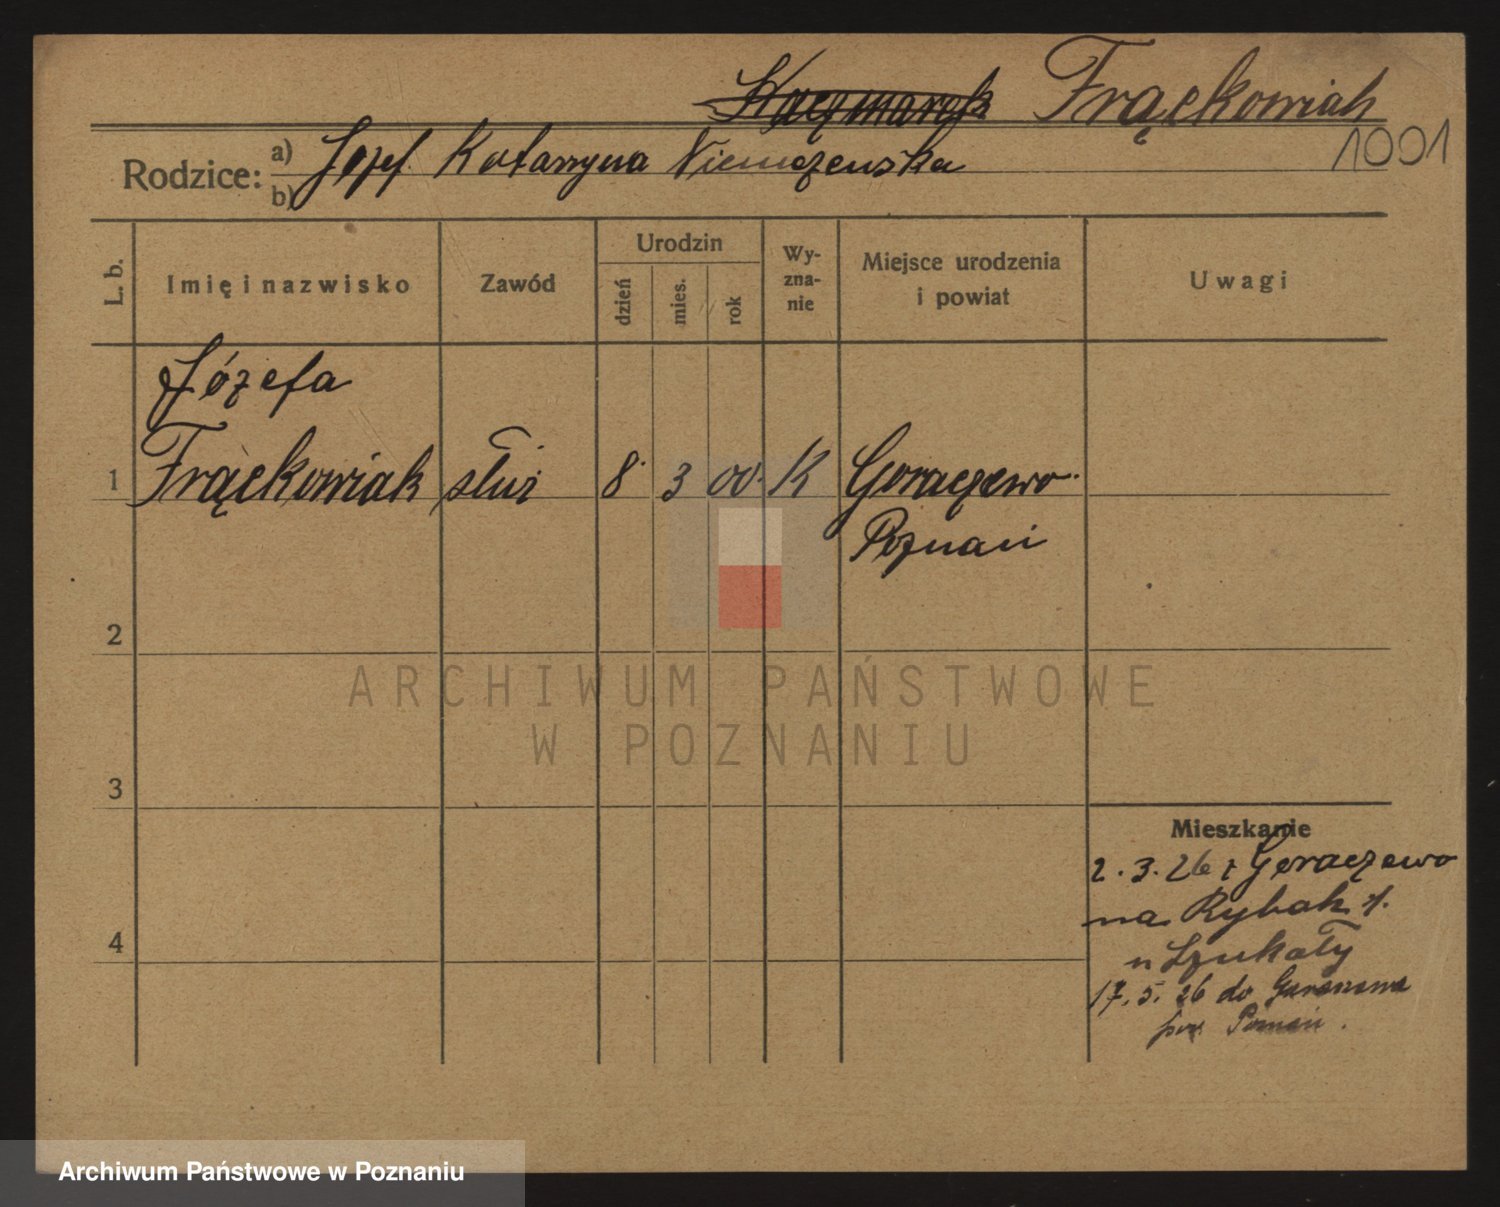 Kaczmarek Frąckowiak
1001
Rodzice: a) Józef. Katarzyna Niemczewska
b)
L. b.
Imię i nazwisko
Zawód
Urodzin
dzień
mies.
rok
Wy-
zna-
nie
Miejsce urodzenia
i powiat
Uwagi
Józefa
1 Frąckowiak służ 8. 3 00. K Goraczewo.
Poznań
2
3
4
Mieszkanie
2.3.26 z Goraczewo
na Rybak 7.
u Szukały
17.5.26 do
pow. Poznań.
ARCHIWUM PAŃSTWOWE
W POZNANIU
Archiwum Państwowe w Poznaniu